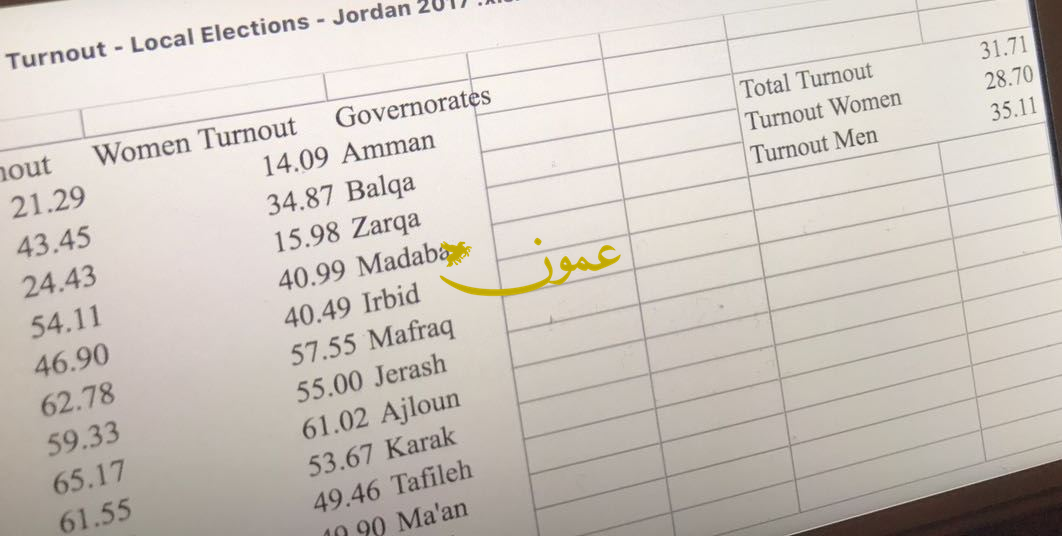 Turnout - Local Elections - Jordan 2017
Women Turnout Governorates
21.29 14.09 Amman
43.45 34.87 Balqa
24.43 15.98 Zarqa
54.11 40.99 Madaba
46.90 40.49 Irbid
62.78 57.55 Mafraq
59.33 55.00 Jerash
65.17 61.02 Ajloun
61.55 53.67 Karak
49.46 Tafileh
Ma'an
Total Turnout 31.71
Turnout Women 28.70
Turnout Men 35.11
عمون